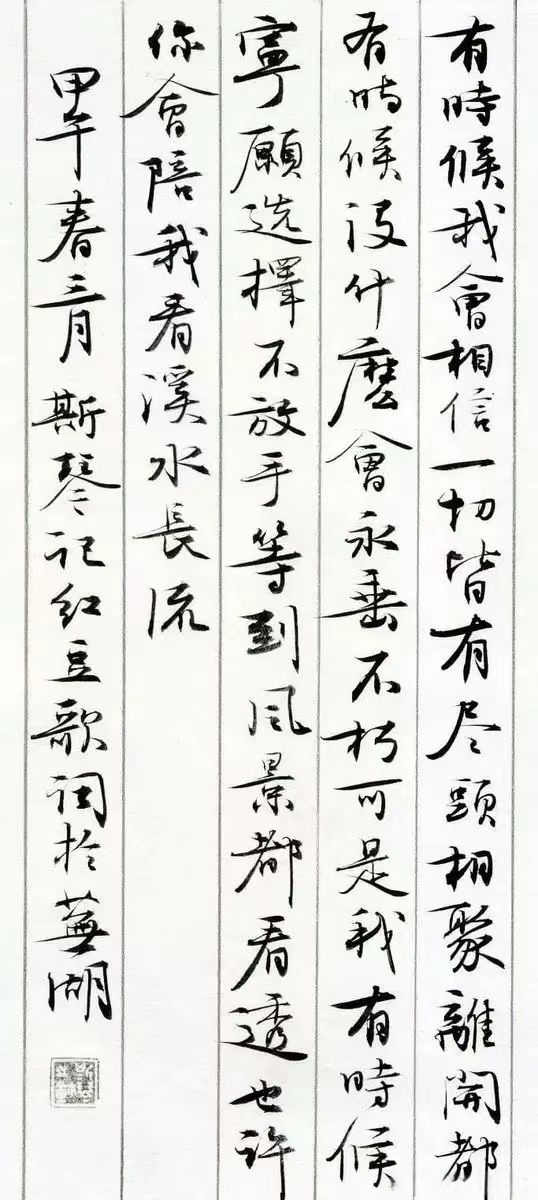 有時候我會相信一切皆有尽頭相聚離開都
有时候没什麽會永垂不朽可是我有時候
寧願选擇不放手等到风景都看透也许
你會陪我看溪水長流
甲午春三月斯琴记红豆歌词於蕪湖